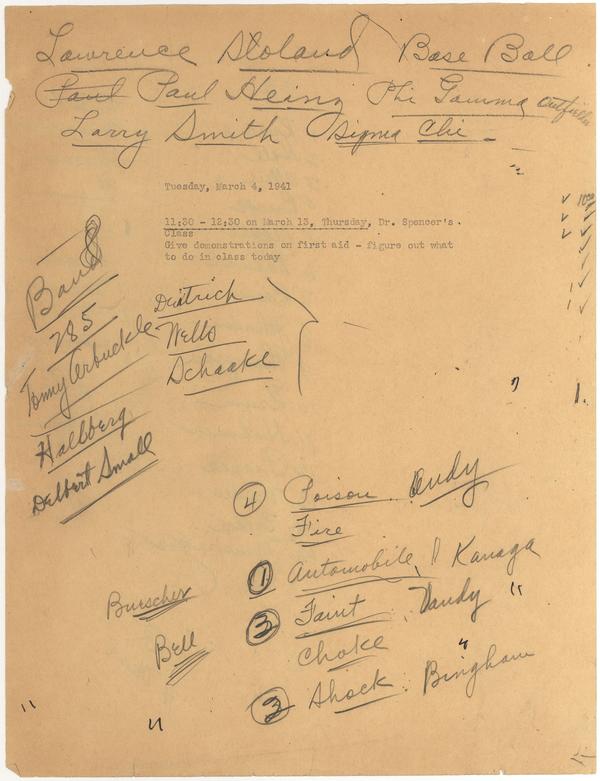 Lawrence Stoland Base Ball
Paul Paul Heinz Phi Gamma Outfielder
Larry Smith Sigma Chi
Tuesday, March 4, 1941
11:30 - 12:30 on March 13, Thursday, Dr. Spencer's
Class
Give demonstrations on first aid - figure out what
to do in class today
Band
285
Tommy Arbuckle
Hallberg
Delbert Small
Deitrich
Wells
Schaake
4 Poison. Andy
Fire
1 Automobile, Kanaga
3 Faint. Vandy "
Choke "
2 Shock. Bingham
Buescher
Bell